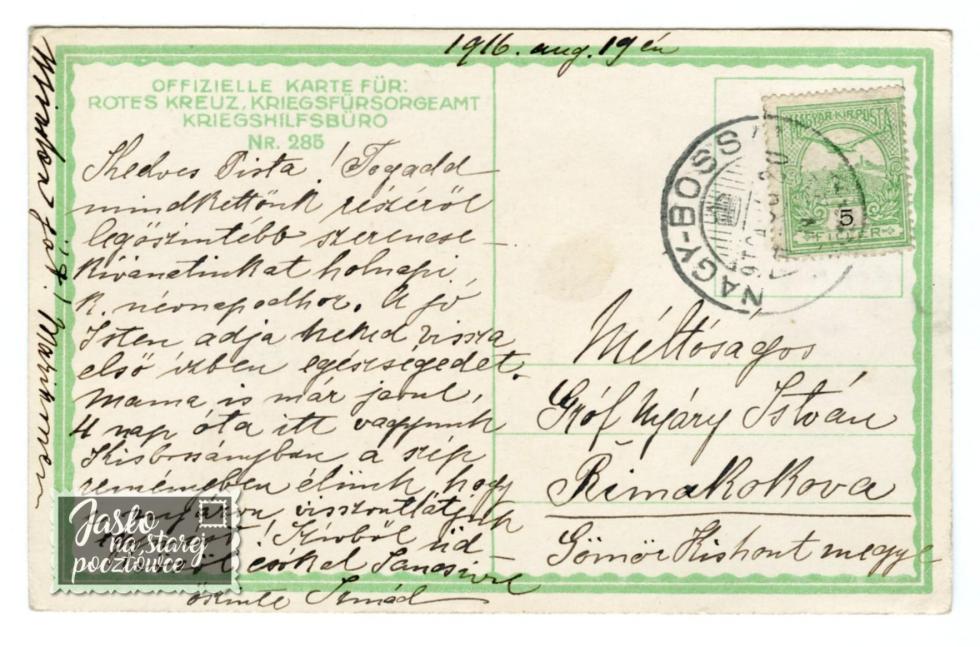 1916. aug. 19én
OFFIZIELLE KARTE FÜR:
ROTES KREUZ, KRIEGSFÜRSORGEAMT
KRIEGSHILFSBÜRO
NR. 285
Kedves Pista! Fogadd
mindkettőnk részéről
legőszintébb szerencse-
kívánatinkat holnapi
k. névnapodhoz. A jó
Isten adja neked vissza
első ízben egészségedet.
Mama is már javul,
4 nap óta itt vagyunk
Kisbossányban a szép
reményben élünk, hogy
viszontlátjuk
Szívből üd-
csókol
MAGYAR KIR. POSTA
5
FILLÉR
NAGY-BOSS
Méltóságos
Gróf Nyáry István
Rimakokova
Gömör Kishont megye
Jasło
na starej
pocztówce